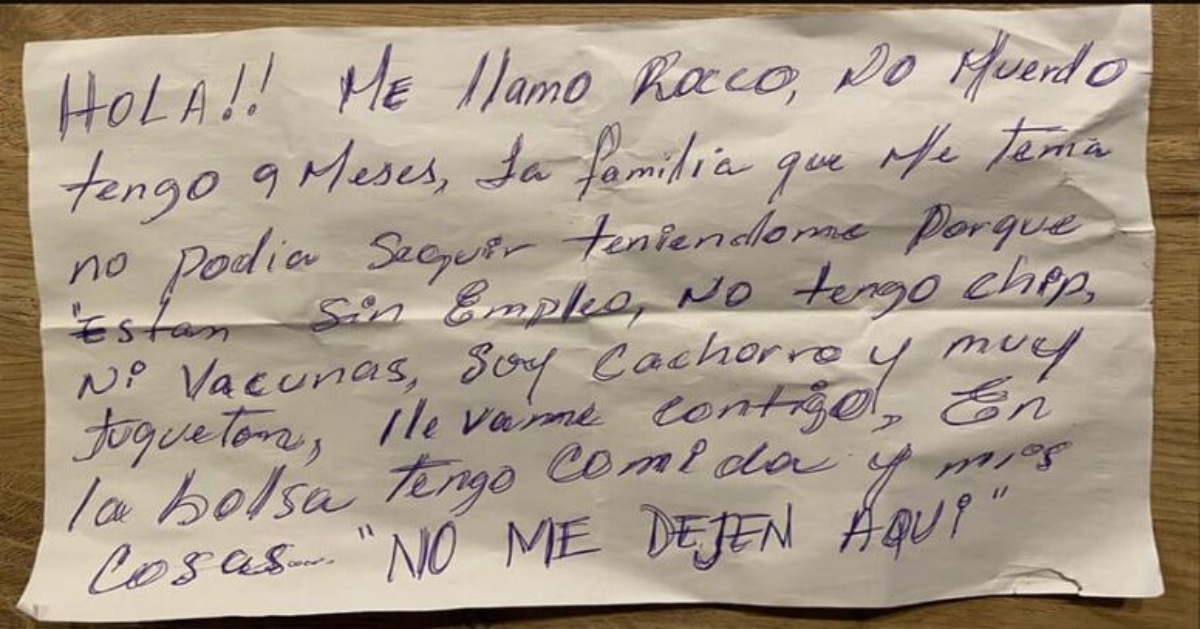 HOLA!! ME llamo Rocco, NO Muerdo
tengo 9 Meses, La familia que Me tenia
no podia Seguir teniendome Porque
"Estan Sin Empleo, NO tengo chip,
Ni Vacunas, Soy Cachorro y muy
Jugueton, llevame contigo, En
la bolsa tengo Comida y mis
Cosas.... "NO ME DEJEN AQUi"